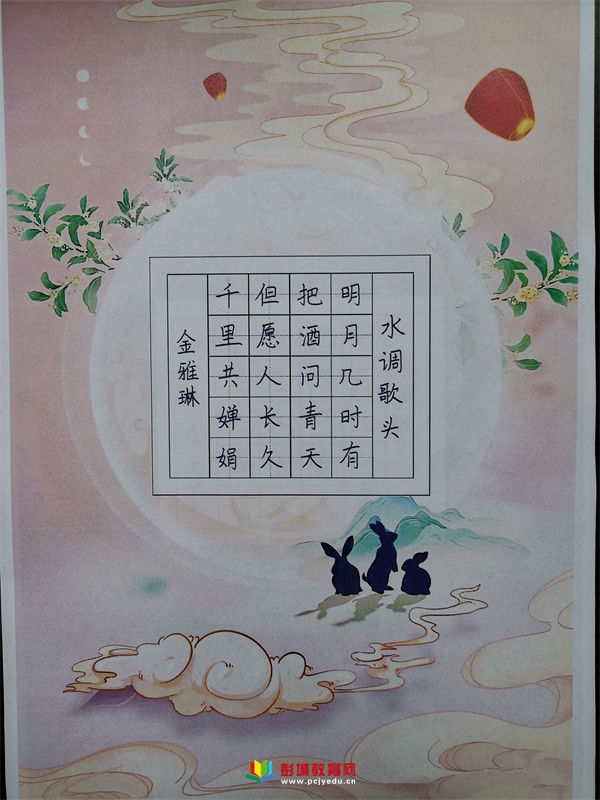 水调歌头
明月几时有
把酒问青天
但愿人长久
千里共婵娟
金雅琳
彭城教育网
www.pcjyedu.cn